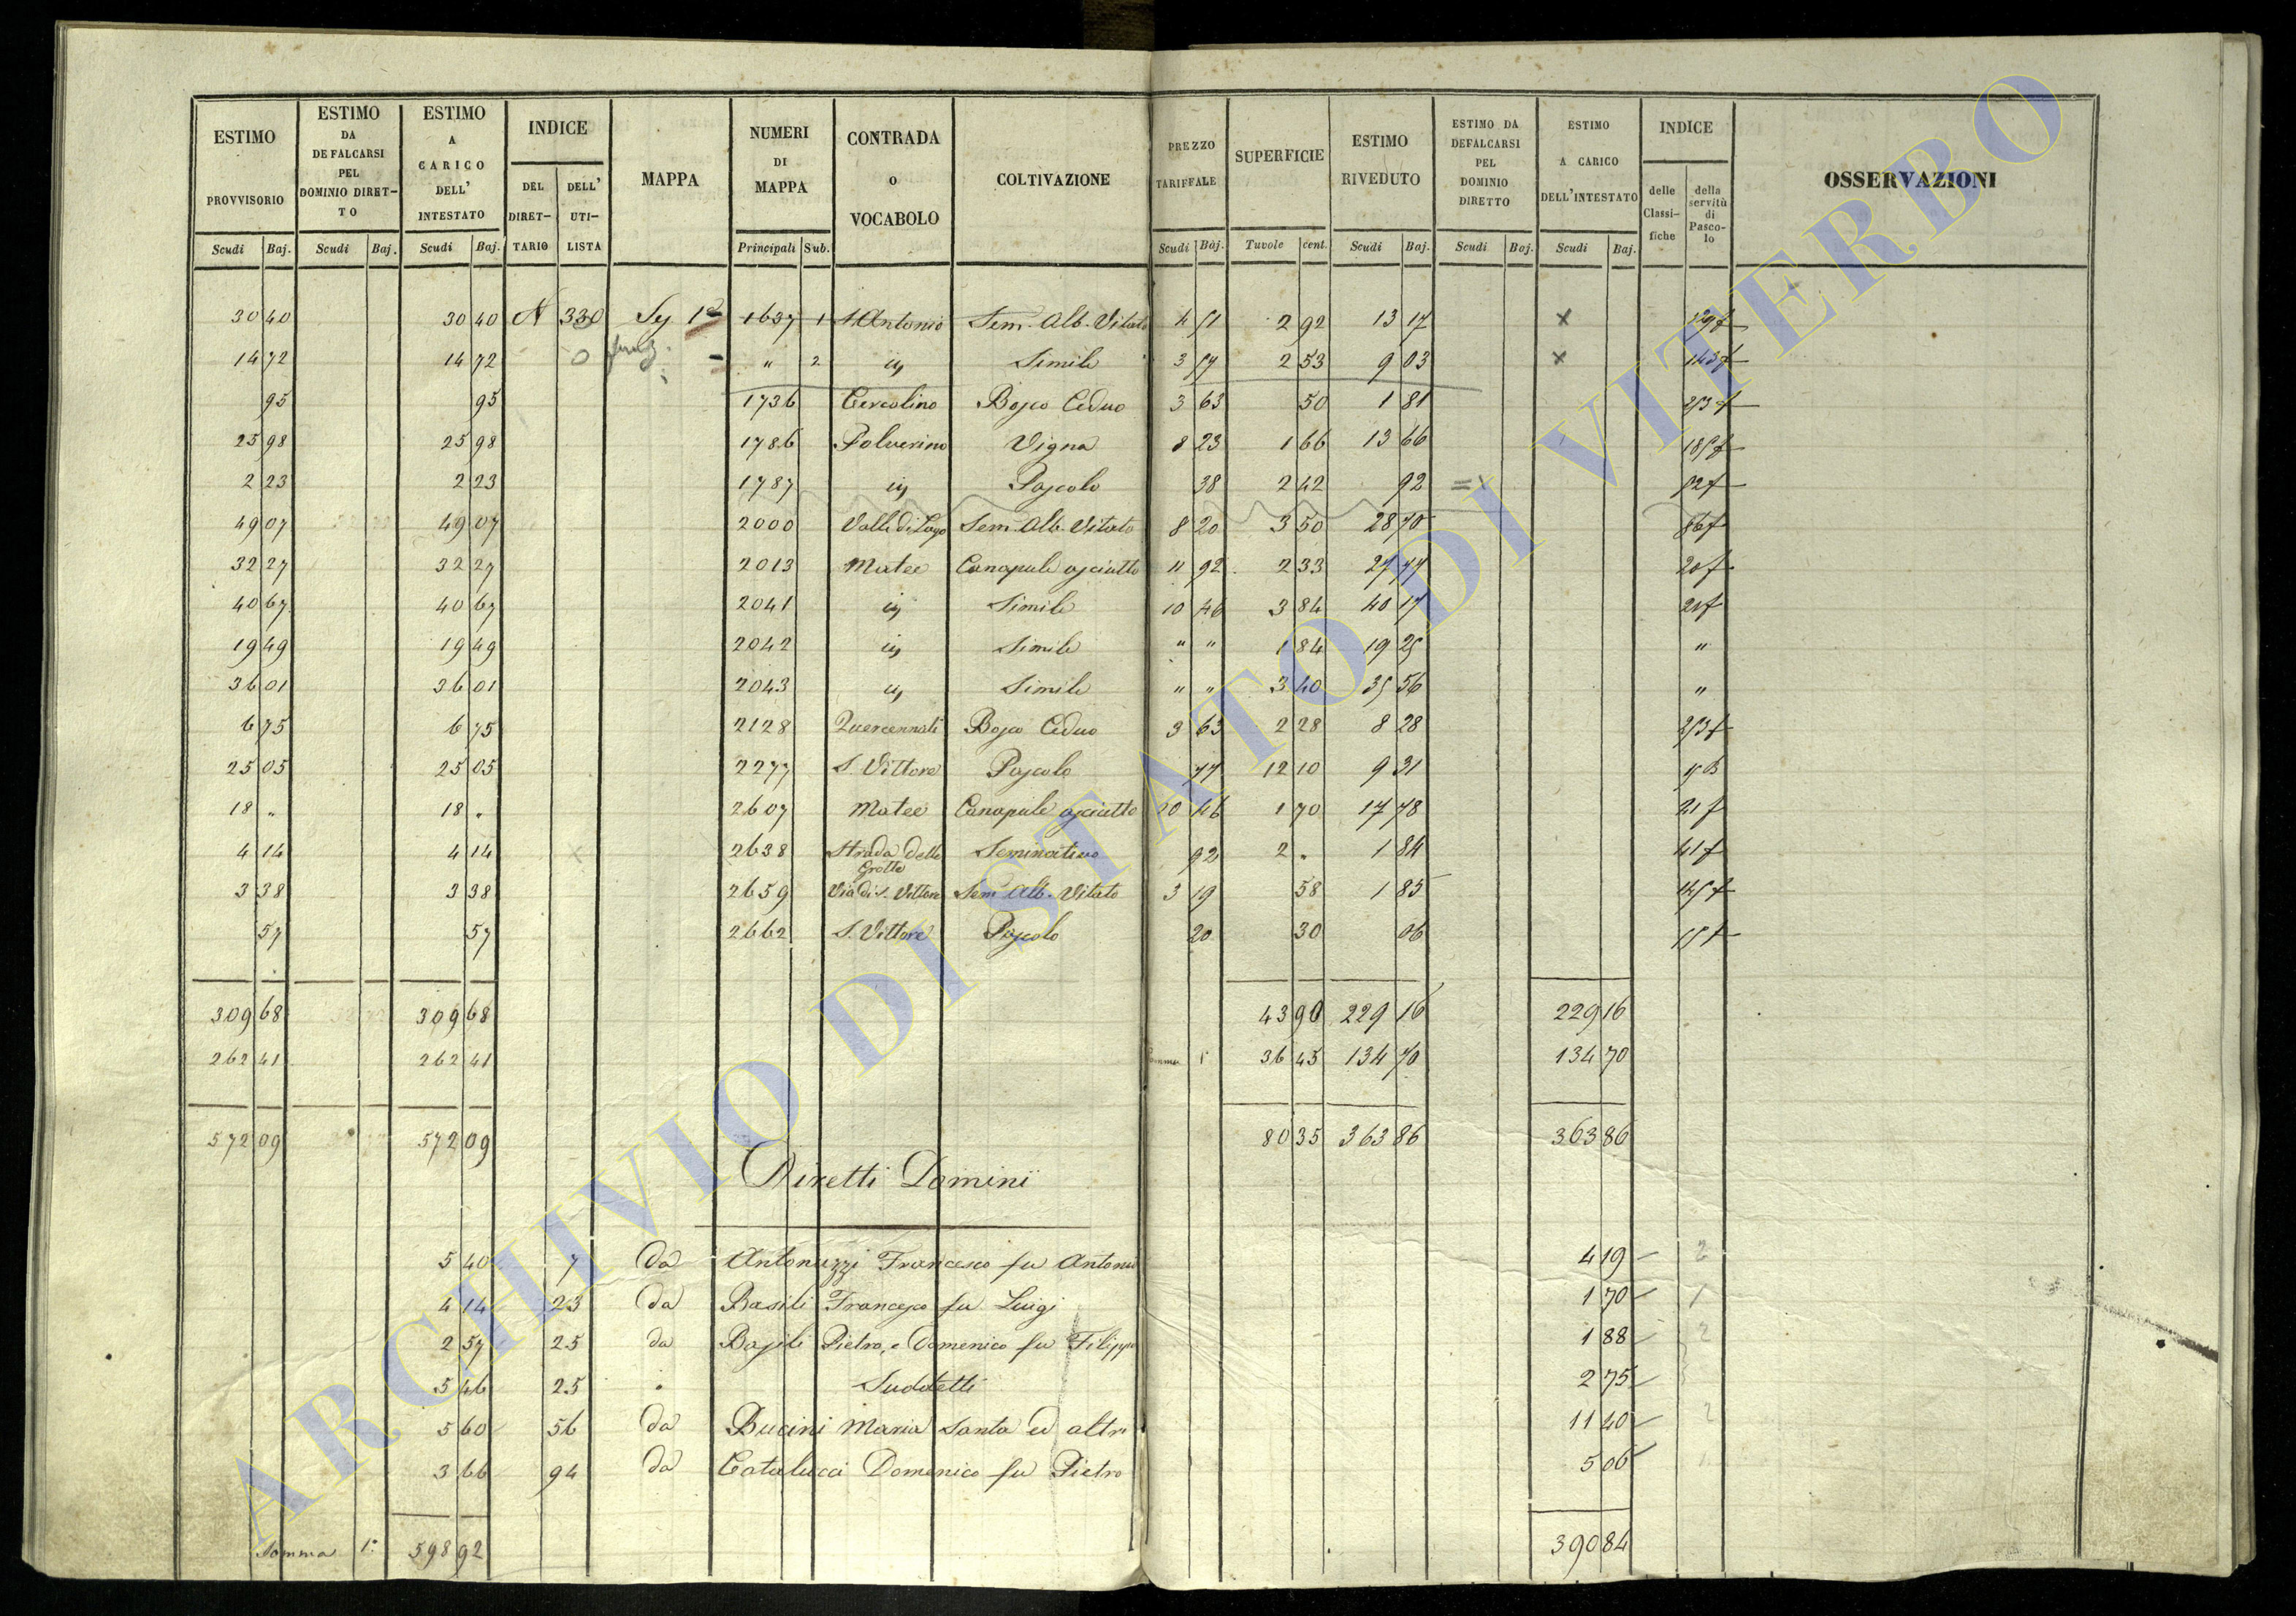 ESTIMO PROVVISORIO | ESTIMO DA DEFALCARSI PEL DOMINIO DIRETTO | ESTIMO A CARICO DELL' INTESTATO | INDICE DEL DIRETTARIO | DELL' UTILISTA | MAPPA | NUMERI DI MAPPA | CONTRADA O VOCABOLO | COLTIVAZIONE | PREZZO TARIFFALE | SUPERFICIE | ESTIMO RIVEDUTO | ESTIMO DA DEFALCARSI PEL DOMINIO DIRETTO | ESTIMO A CARICO DELL'INTESTATO | INDICE delle Classifiche | della servitù di Pascolo | OSSERVAZIONI
Scudi Baj. | Scudi Baj. | Scudi Baj. | Principali Sub. | Scudi Baj. | Tavole cent. | Scudi Baj. | Scudi Baj. | Scudi Baj.
30 40 | 30 40 | N | 330 | Sez 1a | 1637 1 | S. Antonio | Sem. Alb. Vitato | 4 51 | 2 92 | 13 17 | x | 129 f
14 72 | 14 72 | 0 | " 2 | id | Simile | 3 57 | 2 53 | 9 03 | x | 143 f
95 | 95 | 1736 | Cercolino | Bosco Ceduo | 3 63 | 50 | 1 81 | 253 f
25 98 | 25 98 | 1786 | Polverino | Vigna | 8 23 | 1 66 | 13 66 | 185 f
2 23 | 2 23 | 1787 | id | Pascolo | 38 | 2 42 | 92 | 52 f
49 07 | 49 07 | 2000 | Valle di Lago | Sem. Alb. Vitato | 8 20 | 3 50 | 28 70 | 86 f
32 27 | 32 27 | 2013 | Matee | Canapule asciutto | 11 92 | 2 33 | 27 77 | 20 f
40 67 | 40 67 | 2041 | id | Simile | 10 46 | 3 84 | 40 17 | 21 f
19 49 | 19 49 | 2042 | id | Simile | " " | 1 84 | 19 25 | "
36 01 | 36 01 | 2043 | id | Simile | " " | 3 40 | 35 56 | "
6 75 | 6 75 | 2128 | Quercennati | Bosco Ceduo | 3 63 | 2 28 | 8 28 | 253 f
25 05 | 25 05 | 2277 | S. Vittore | Pascolo | 77 | 12 10 | 9 31
18 " | 18 " | 2607 | Matee | Canapule asciutto | 10 46 | 1 70 | 17 78 | 21 f
4 14 | 4 14 | x | 2638 | Strada delle Grotte | Seminativo | 92 | 2 " | 1 84 | 41 f
3 38 | 3 38 | 2659 | Via di S. Vittore | Sem. Alb. Vitato | 3 19 | 58 | 1 85 | 145 f
57 | 57 | 2662 | S. Vittore | Pascolo | 20 | 30 | 06
309 68 | 309 68 | 43 90 | 229 16 | 229 16
262 41 | 262 41 | Somma | 36 45 | 134 70 | 134 70
572 09 | 572 09 | 80 35 | 363 86 | 363 86
Diretti Dominii
5 40 | 7 | da | Antonuzzi Francesco fu Antonio | 4 19 | 2
4 14 | 23 | da | Basili Francesco fu Luigi | 1 70 | 1
2 57 | 25 | da | Basili Pietro, e Domenico fu Filippo | 1 88 | 2
5 46 | 25 | " | Suddetti | 2 75
5 60 | 56 | da | Bucini Maria Santa ed altri | 11 40 | 2
3 66 | 94 | da | Catalucci Domenico fu Pietro | 5 06
Somma 1a | 598 92 | 390 84
ARCHIVIO DI STATO DI VITERBO